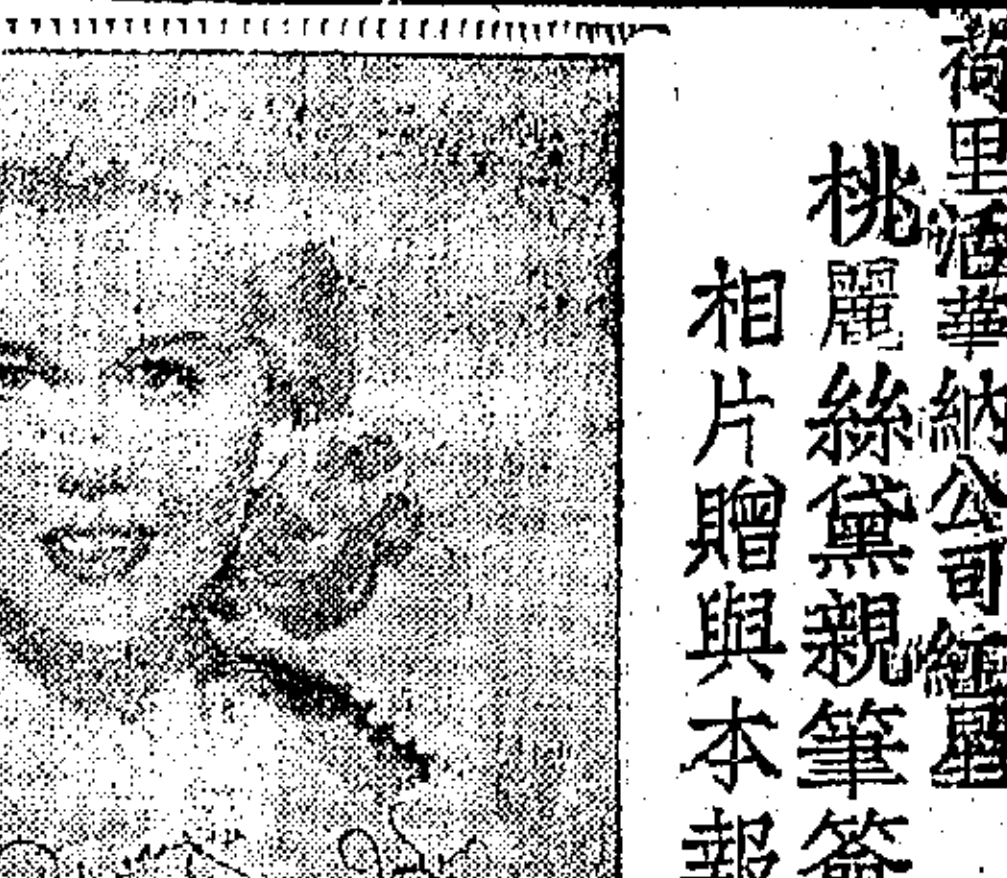 荷里活華納公司紅星
桃麗絲黛親筆簽
相片贈與本報